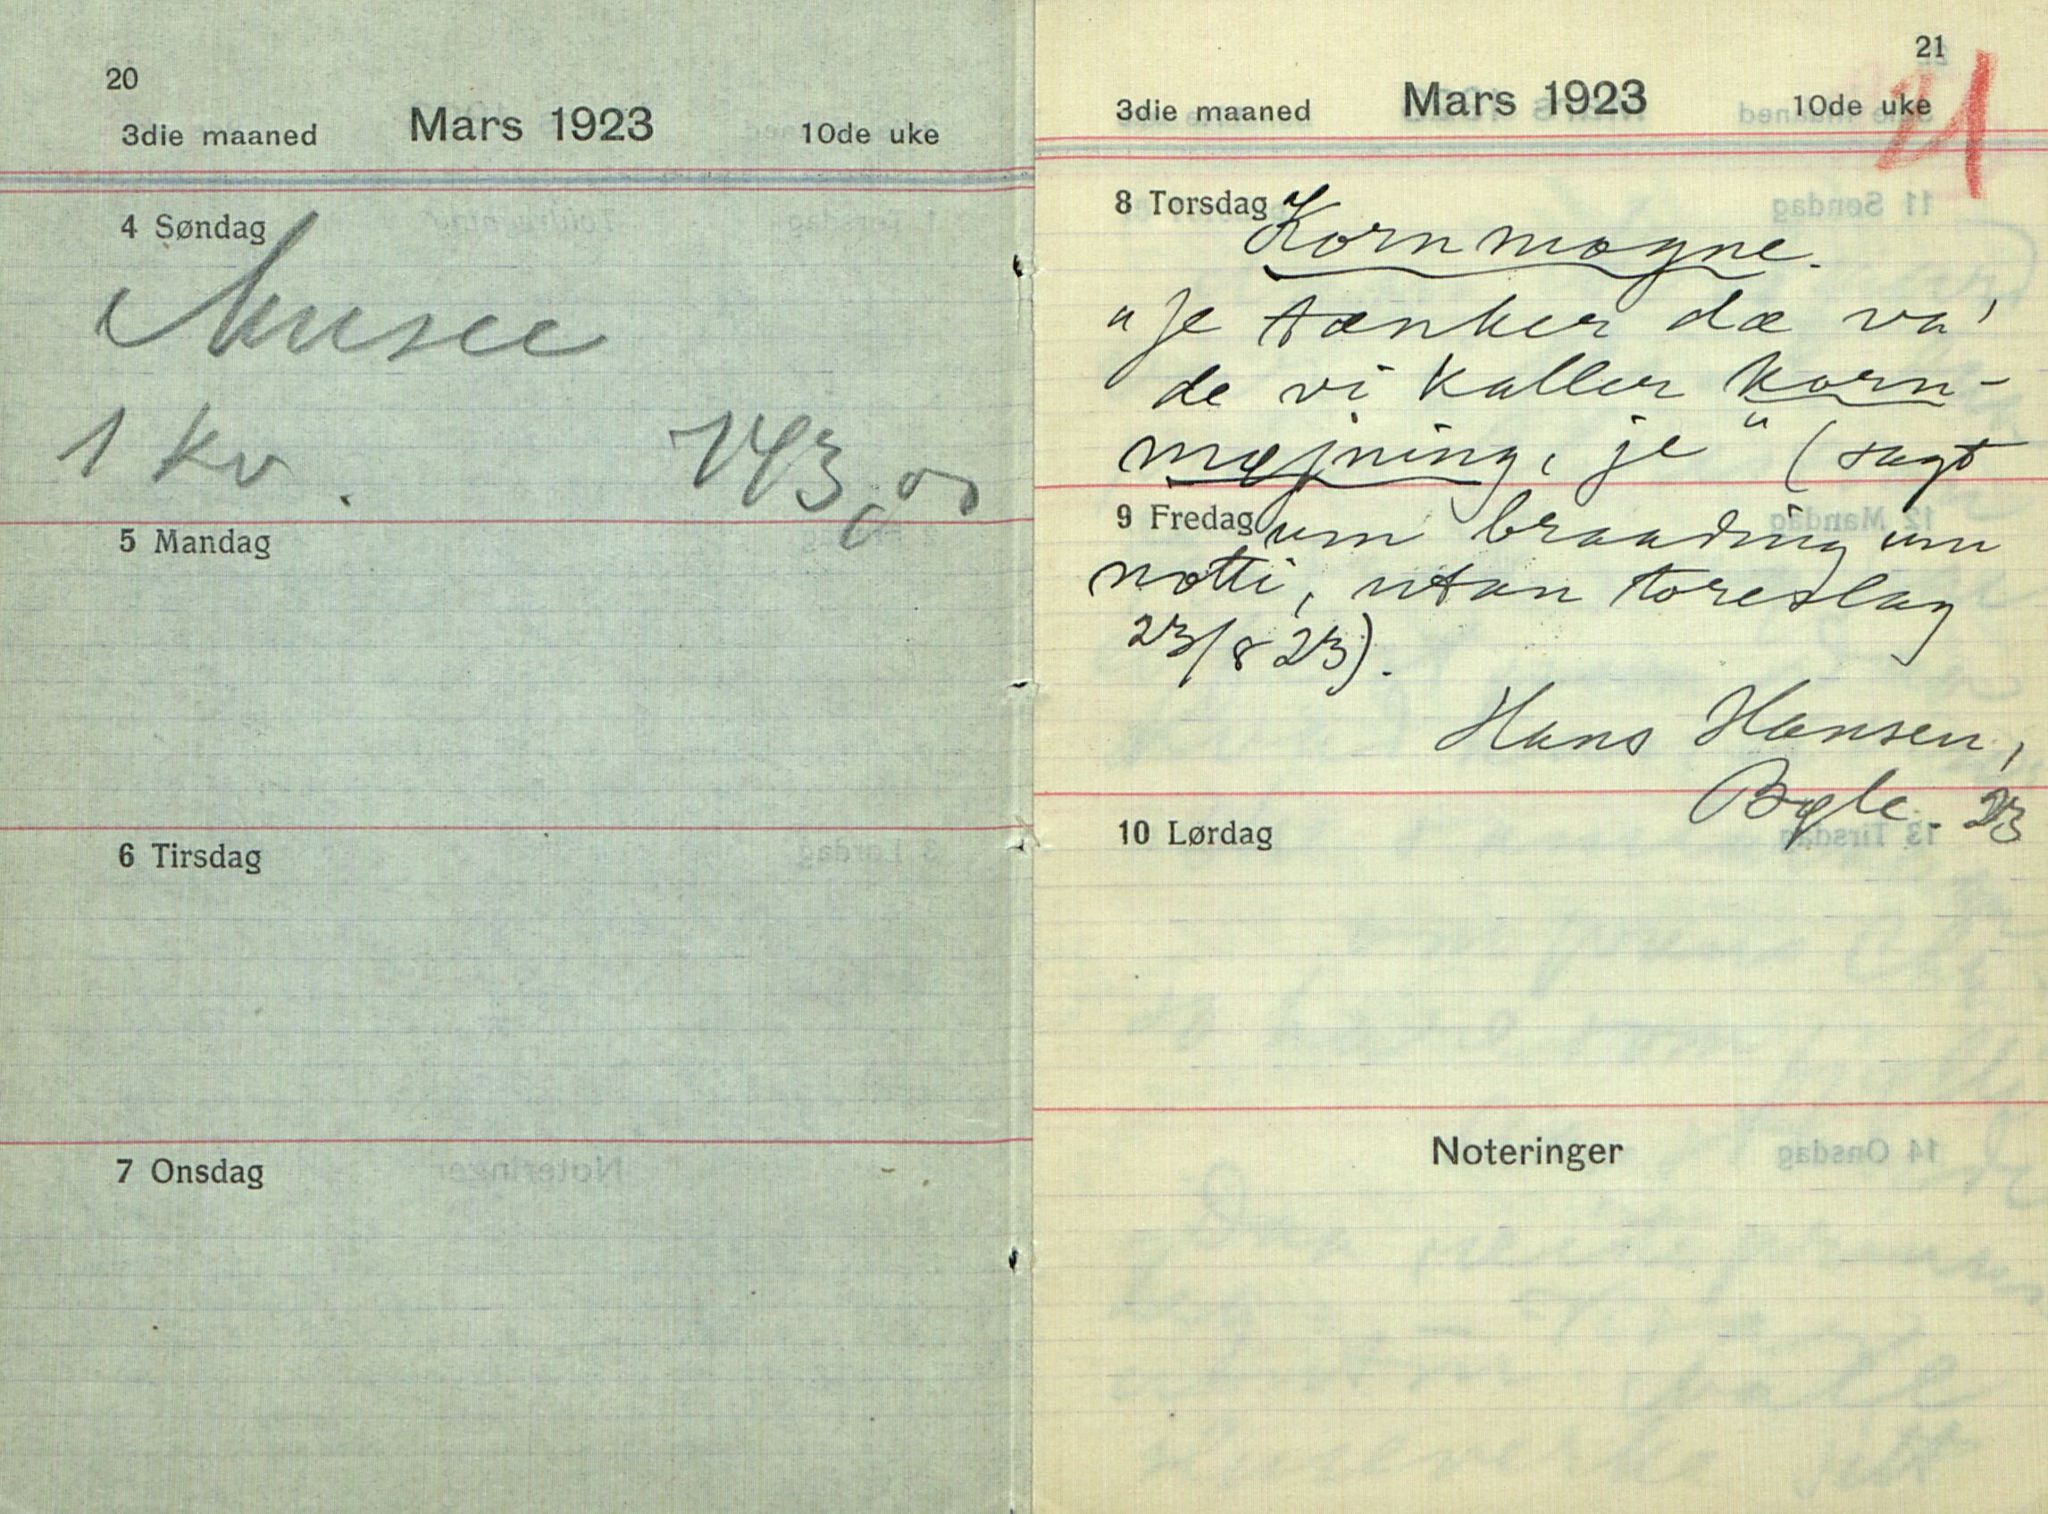 20
3die maaned Mars 1923 10de uke
4 Søndag
Musee
1 kv. 143,00
5 Mandag
6 Tirsdag
7 Onsdag
21
21
3die maaned Mars 1923 10de uke
8 Torsdag
Kornmogne.
"Je tænker dæ va'
de vi kaller korn-
mæjning, je" (sagt
9 Fredag
um braading um
notti, utan toreslag
23/8 23).
Hans Hansen,
Bøle. 23
10 Lørdag
Noteringer